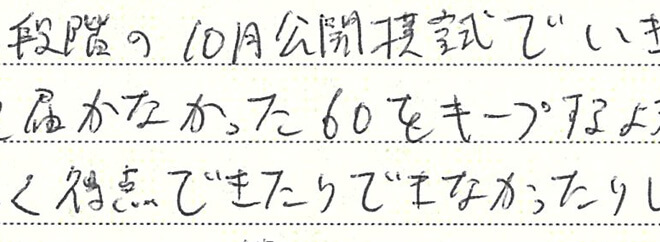 段階の10月公開模試でいき
届かなかった60をキープするよう
く得点できたりできなかったりし